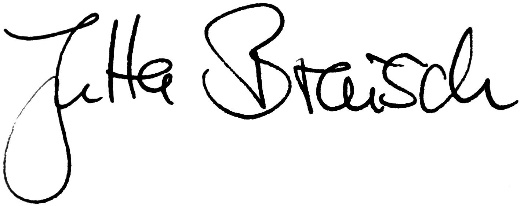 Jutta Braisch